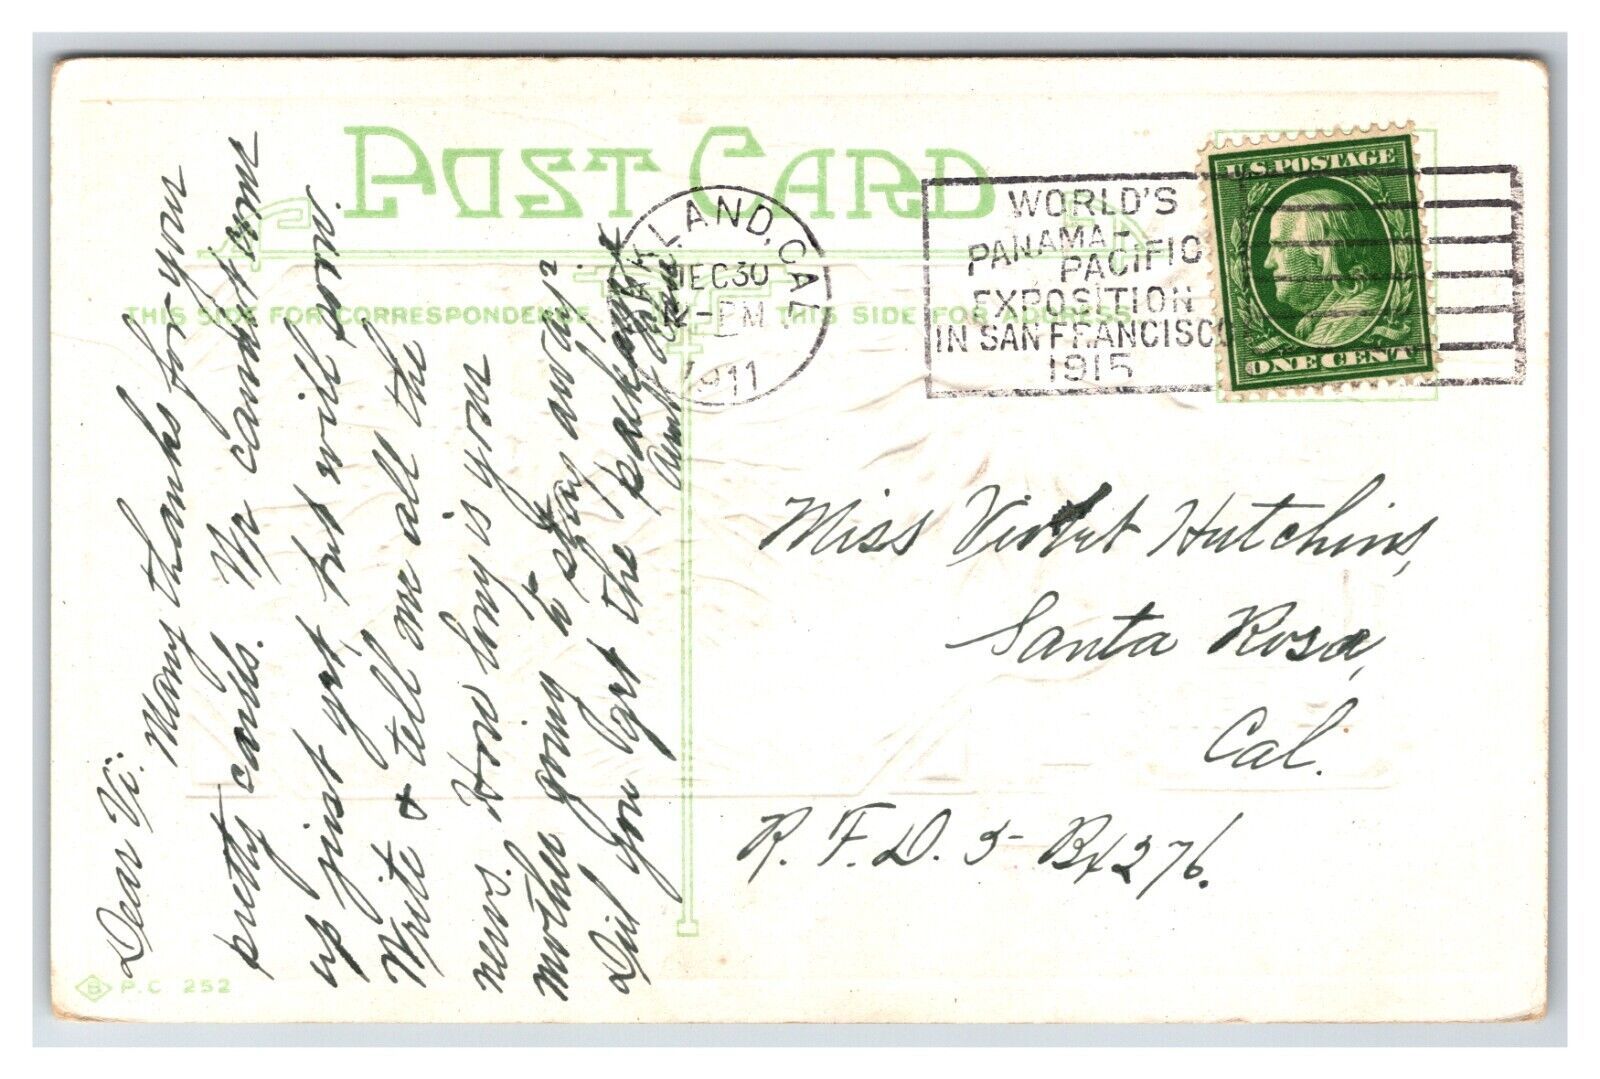 POST CARD
THIS SIDE FOR CORRESPONDENCE.
THIS SIDE FOR ADDRESS.
LAND, CAL.
DEC 30
-PM
1911
WORLD'S
PANAMA-
PACIFIC
EXPOSITION
IN SAN FRANCISCO
1915
U.S. POSTAGE
ONE CENT
Dear Vi:
Many thanks for your
pretty cards. We cannot come
up just yet, but will soon.
Write & tell me all the
news. How long is your
mother going to stay away?
Did you get the package
Aunt
Miss Violet Hutchins,
Santa Rosa,
Cal.
R. F. D. 5 - Bx 276.
B P.C 252